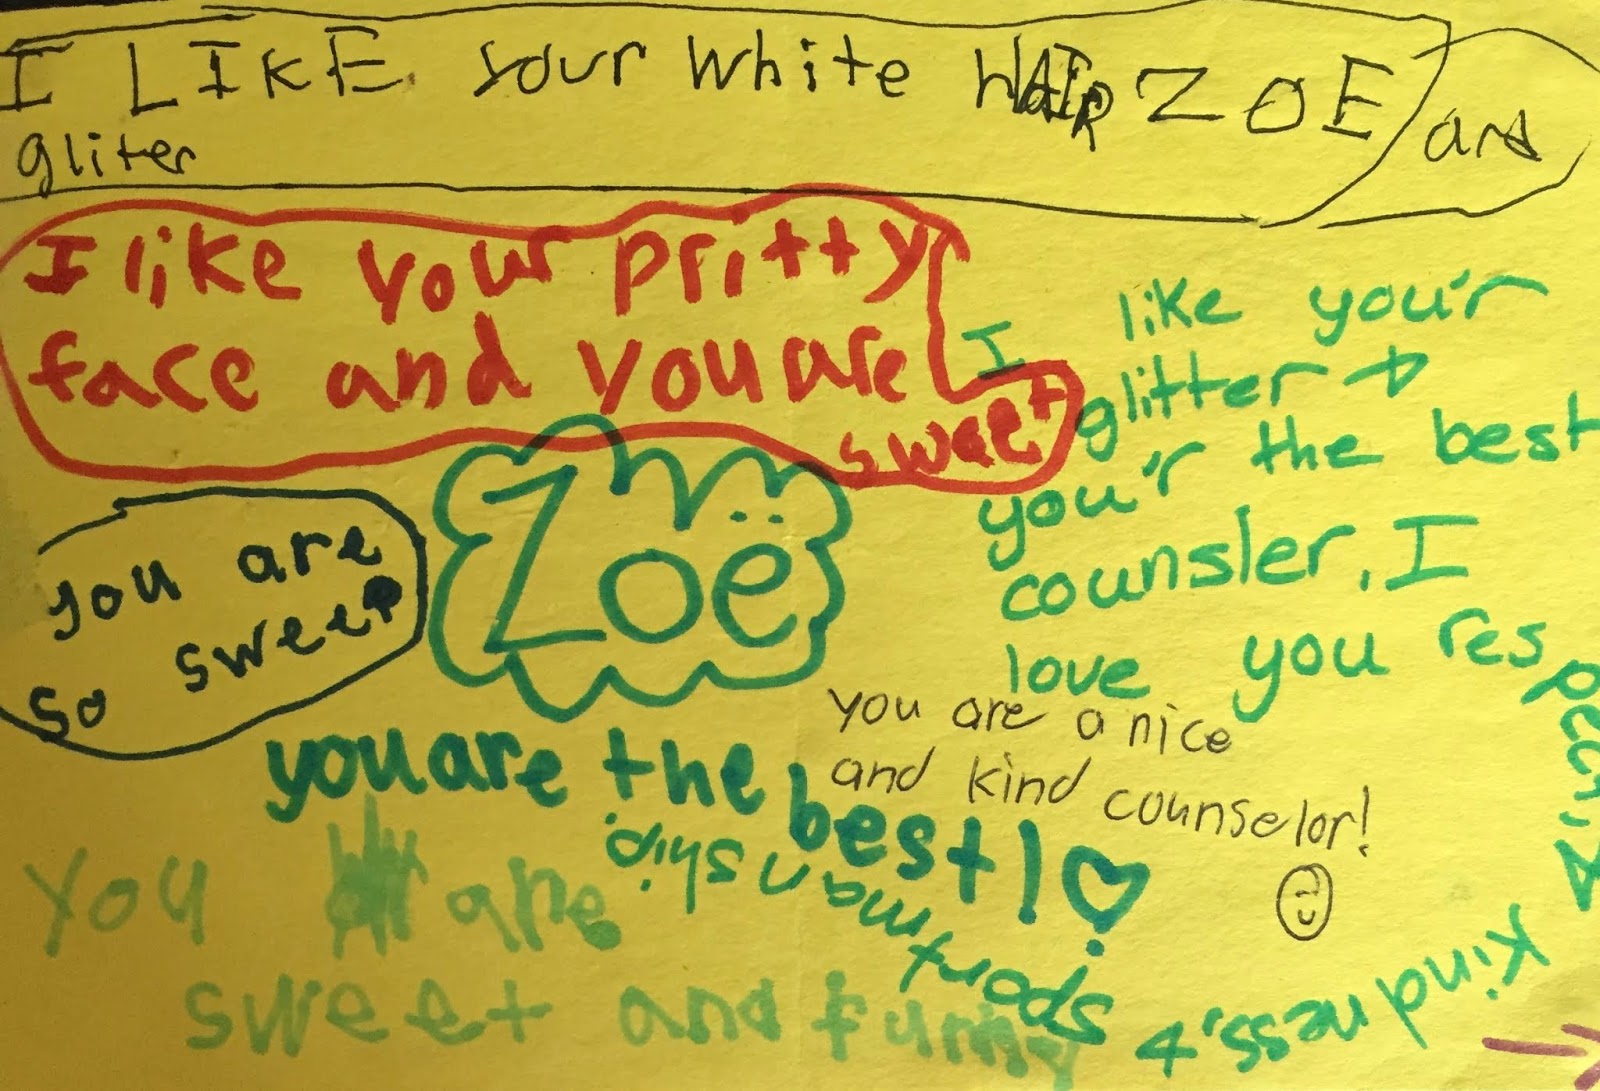 I LIKE your white HAIR ZOE and
gliter
I like your pritty
face and you are
sweet
I like you'r
glitter &
you'r the best
counsler. I
love you respect, &
kindness, &
sportmanship.
Zoë
you are
so sweet
you are the best!
you are a nice
and kind counselor!
You are
sweet and funny